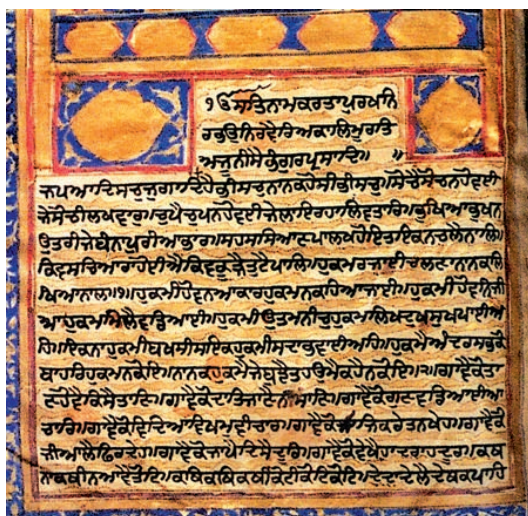 ੴਸਤਿਨਾਮਕਰਤਾਪੁਰਖਨਿ
ਰਭਉਨਿਰਵੈਰਅਕਾਲਮੂਰਤਿ
ਅਜੂਨੀਸੈਭੰਗੁਰਪ੍ਰਸਾਦਿ॥ ॥
ਜਪਆਦਿਸਚੁਜੁਗਾਦਿਹੈਭੀਸਚੁਨਾਨਕਹੋਸੀਭੀਸਚੁ॥ਸੋਚੈਸੋਚਨਹੋਵਈ
ਜੇਸੋਚੀਲਖਵਾਰ॥ਚੁਪੈਚੁਪਨਹੋਵਈਜੇਲਾਇਰਹਾਲਿਵਤਾਰ॥ਭੁਖਿਆਭੁਖਨ
ਉਤਰੀਜੇਬੰਨਾਪੁਰੀਆਭਾਰ॥ਸਹਸਸਿਆਣਪਾਲਖਹੋਹਿਤਇਕਨਚਲੈਨਾਲਿ॥
ਕਿਵਸਚਿਆਰਾਹੋਈਐਕਿਵਕੂੜੈਤੁਟੈਪਾਲਿ॥ਹੁਕਮਰਜਾਈਚਲਣਾਨਾਨਕਲਿ
ਖਿਆਨਾਲ॥੧॥ਹੁਕਮੀਹੋਵਨਆਕਾਰਹੁਕਮਨਕਹਿਆਜਾਈ॥ਹੁਕਮੀਹੋਵਨਿਜੀ
ਅਹੁਕਮਮਿਲੈਵਡਿਆਈ॥ਹੁਕਮੀਉਤਮਨੀਚੁਹੁਕਮਲਿਖਦੁਖਸੁਖਪਾਈਅ
ਹਿ॥ਇਕਨਾਹੁਕਮੀਬਖਸੀਸਇਕਹੁਕਮੀਸਦਾਭਵਾਈਅਹਿ॥ਹੁਕਮੈਅੰਦਰਸਭਕੋ
ਬਾਹਰਿਹੁਕਮਨਕੋਇ॥ਨਾਨਕਹੁਕਮੈਜੇਬੁਝੈਤਹਉਮੈਕਹੈਨਕੋਇ॥੨॥ਗਾਵੈਕੋਤਾ
ਣਹੋਵੈਕਿਸੈਤਾਣ॥ਗਾਵੈਕੋਦਾਤਿਜਾਣੈਨੀਸਾਣ॥ਗਾਵੈਕੋਗੁਣਵਡਿਆਈਆ
ਚਾਰ॥ਗਾਵੈਕੋਵਿਦਿਆਵਿਖਮਵੀਚਾਰ॥ਗਾਵੈਕੋਸਾਜਿਕਰੇਤਨਖੇਹ॥ਗਾਵੈਕੋ
ਜੀਅਲੈਫਿਰਦੇਹ॥ਗਾਵੈਕੋਜਾਪੈਦਿਸੈਦੂਰਿ॥ਗਾਵੈਕੋਵੇਖੈਹਾਦਰਾਹਦੂਰ॥ਕਥ
ਨਾਕਥੀਨਆਵੈਤੋਟਿ॥ਕਥਿਕਥਿਕਥੀਕੋਟੀਕੋਟਿਕੋਟਿ॥ਦੇਦਾਦੇਲੈਦੇਥਕਪਾਹਿ